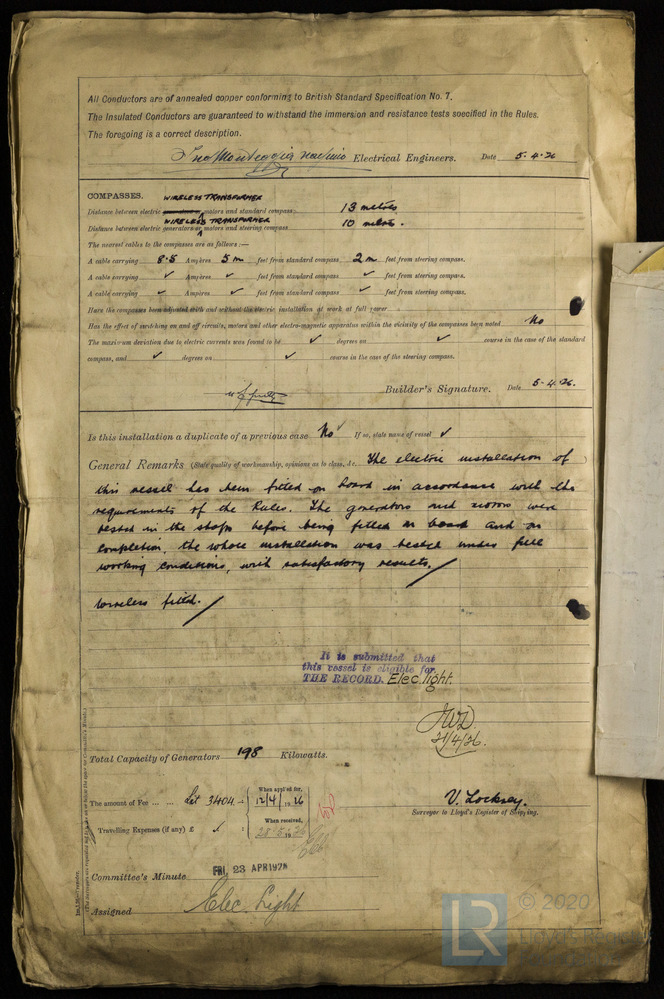 All Conductors are of annealed copper conforming to British Standard Specification No. 7.
The Insulated Conductors are guaranteed to withstand the immersion and resistance tests specified in the Rules.
The foregoing is a correct description.
Electrical Engineers. Date 5.4.26
COMPASSES. WIRELESS TRANSFORMER
Distance between electric motors and standard compass 13 metres
WIRELESS TRANSFORMER
Distance between electric generators or motors and steering compass 10 metres.
The nearest cables to the compasses are as follows:—
A cable carrying 8.5 Ampères 5 m feet from standard compass 2 m feet from steering compass.
A cable carrying ✓ Ampères ✓ feet from standard compass ✓ feet from steering compass.
A cable carrying ✓ Ampères ✓ feet from standard compass ✓ feet from steering compass.
Have the compasses been adjusted with and without the electric installation at work at full power
Has the effect of switching on and off circuits, motors and other electro-magnetic apparatus within the vicinity of the compasses been noted No
The maximum deviation due to electric currents was found to be ✓ degrees on ✓ course in the case of the standard
compass, and ✓ degrees on ✓ course in the case of the steering compass.
Builder's Signature. Date 5.4.26.
Is this installation a duplicate of a previous case No ✓ If so, state name of vessel ✓
General Remarks (State quality of workmanship, opinions as to class, &c. The electric installation of
this vessel has been fitted on board in accordance with the
requirements of the Rules. The generators and motors were
tested in the shops before being fitted on board and on
completion, the whole installation was tested under full
working conditions, with satisfactory results.
Wireless fitted.
It is submitted that
this vessel is eligible for
THE RECORD. Elec. light.
JWD.
21/4/26.
Total Capacity of Generators 198 Kilowatts.
The amount of Fee ... ... Lit 3404.- When applied for, 12/4/1926
Travelling Expenses (if any) £ ✓ : When received,
V. Locksey.
Surveyor to Lloyd's Register of Shipping.
Committee's Minute FRI. 23 APR 1926
Assigned Elec. Light
LR © 2020